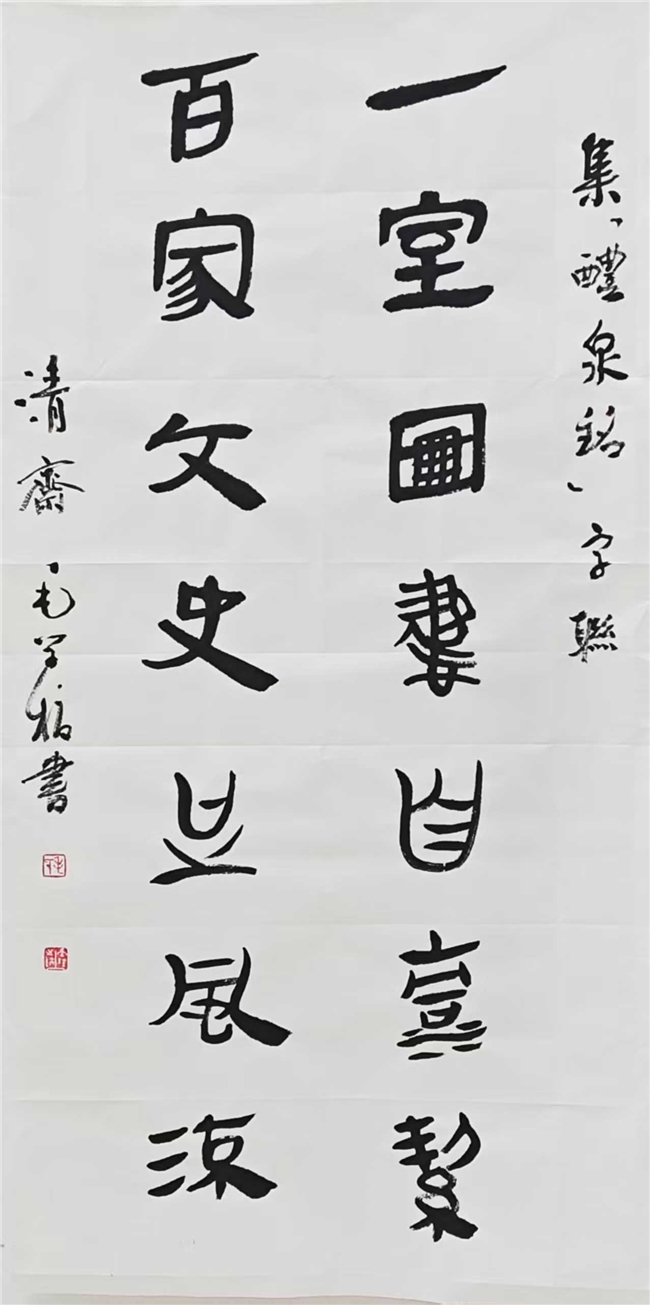 集「醴泉銘」字聯
一室圖書自絜
百家文史足風流
清齋 毛學書